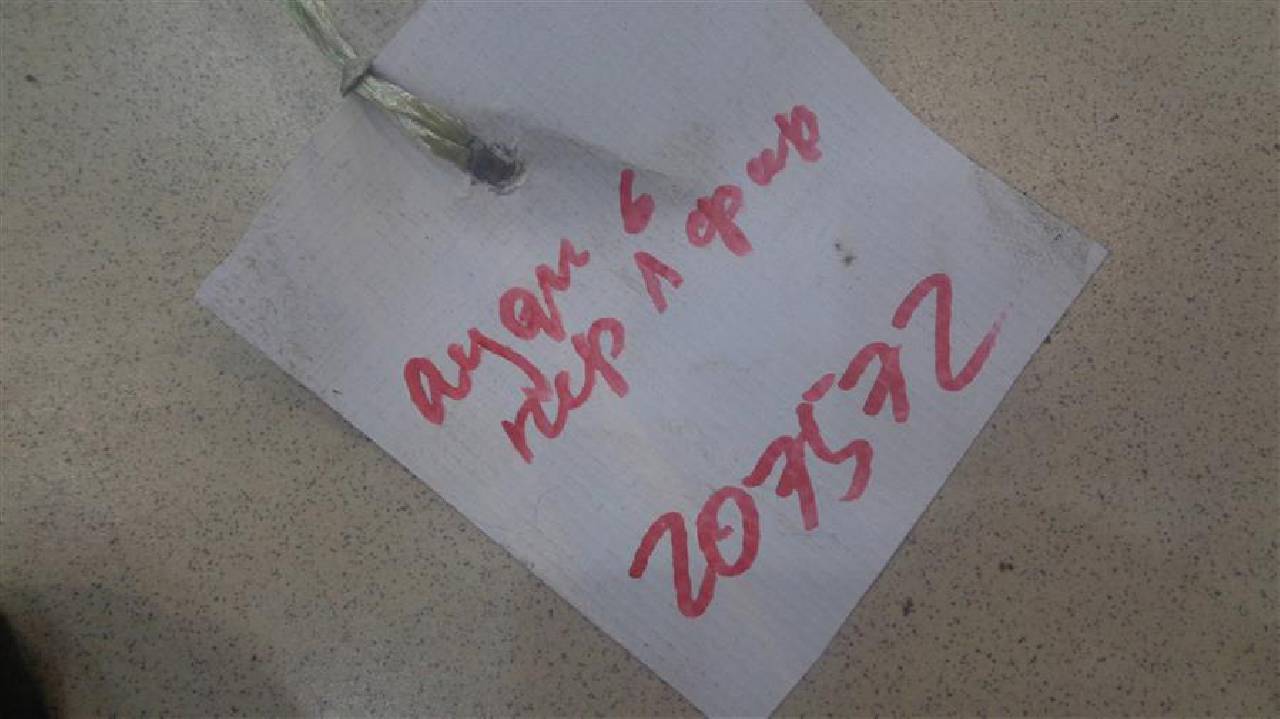 ауди 6
пер л фар
203572